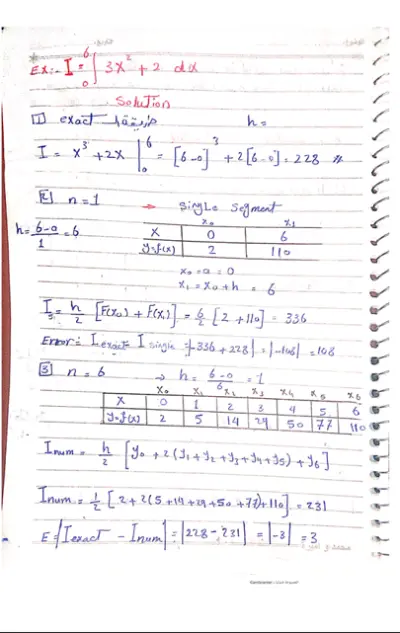 Ex:- I = ∫₀⁶ 3x² + 2 dx
Solution
1 exact طريقة h=
I = x³ + 2x |₀⁶ = [6-0]³ + 2[6-0] = 228 #
2 n = 1 → single segment
h = (6-0)/1 = 6
x₀ x₁
X 0 6
y=f(x) 2 110
x₀ = a = 0
x₁ = x₀ + h = 6
I = h/2 [F(x₀) + F(x₁)] = 6/2 [2 + 110] = 336
Error = I exact - I single = |-336 + 228| = |-108| = 108
3 n = 6 → h = (6-0)/6 = 1
x₀ x₁ x₂ x₃ x₄ x₅ x₆
X 0 1 2 3 4 5 6
y=f(x) 2 5 14 29 50 77 110
Inum = h/2 [y₀ + 2(y₁ + y₂ + y₃ + y₄ + y₅) + y₆]
Inum = 1/2 [2 + 2(5 + 14 + 29 + 50 + 77) + 110] = 231
E = |Iexact - Inum| = |228 - 231| = |-3| = 3